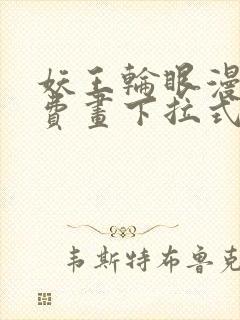 妖王輪眼漫
費畫下拉式
韦斯特布鲁克